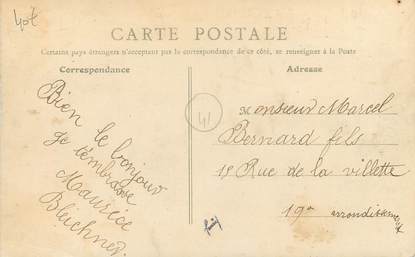 40t
CARTE POSTALE
Certains pays étrangers n'acceptant pas la correspondance de ce côté, se renseigner à la Poste
Correspondance
Adresse
Bien le bonjour
je t'embrasse
Maurice
Bleichner.
41
Monsieur Marcel
Bernard fils
18 Rue de la villette
19e arrondissement